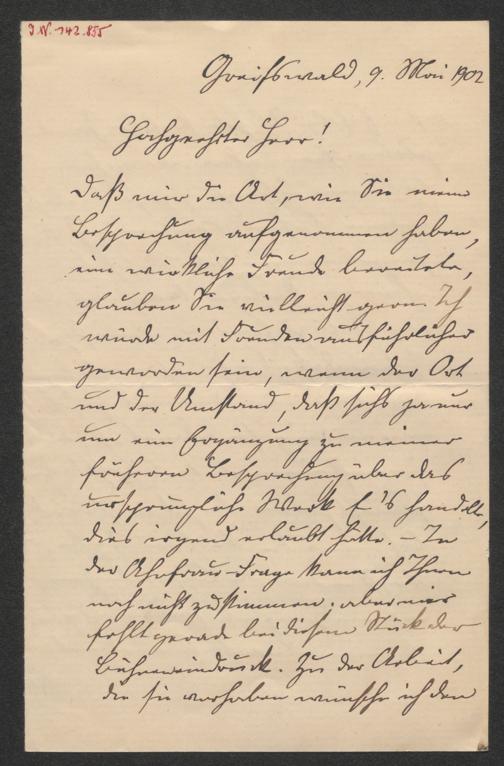 J.N. 142.855
Greifswald, 9. Mai 1902
Hochgeehrter Herr!
Daß mir die Art, wie Sie meine
Besprechung aufgenommen haben,
eine wirkliche Freude bereitete,
glauben Sie vielleicht gern. Ich
würde mit Freuden ausführlicher
geworden sein, wenn der Ort
und der Umstand, daß sichs ja nur
um eine Ergänzung zu meiner
früheren Besprechung über das
ursprüngliche Werk E's handelte,
dies irgend erlaubt hätte. – In
der Ahnfrau-Frage kann ich Ihnen
noch nicht zustimmen; aber mir
fehlt gerade bei diesem Stück der
Bühneneindruck. Zu der Arbeit,
die Sie vorhaben wünsche ich den